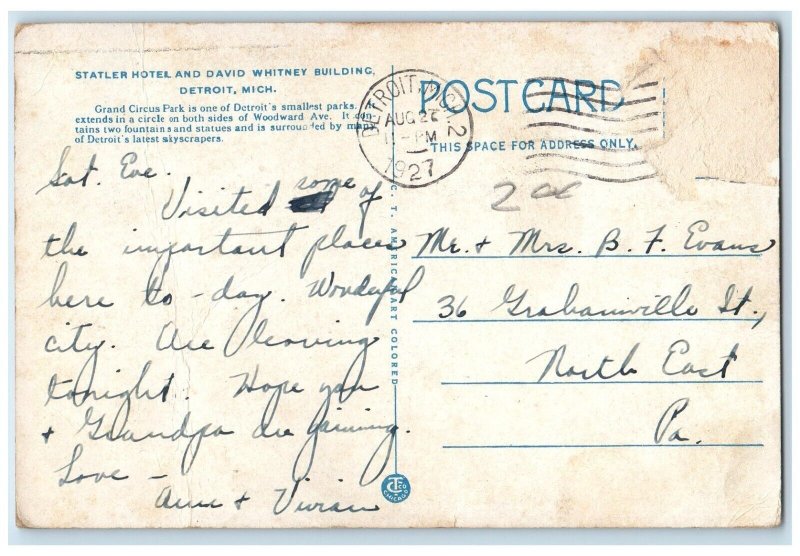 STATLER HOTEL AND DAVID WHITNEY BUILDING,
DETROIT, MICH.
Grand Circus Park is one of Detroit's smallest parks.
extends in a circle on both sides of Woodward Ave. It
tains two fountains and statues and is surrounded by many
of Detroit's latest skyscrapers.
POST CARD
THIS SPACE FOR ADDRESS ONLY.
DETROIT, MICH. 2
AUG 27
PM
1927
Sat. Eve.
Visited some of
the important places
here to-day. Wonderful
city. Are leaving
tonight. Hope you
+ Grandpa are gaining.
Love -
+ Vivian
C. T. AMERICAN ART COLORED
CT CO
CHICAGO
2
Mr. + Mrs. B. F. Evans
36 Grahamville St.,
North East
Pa.